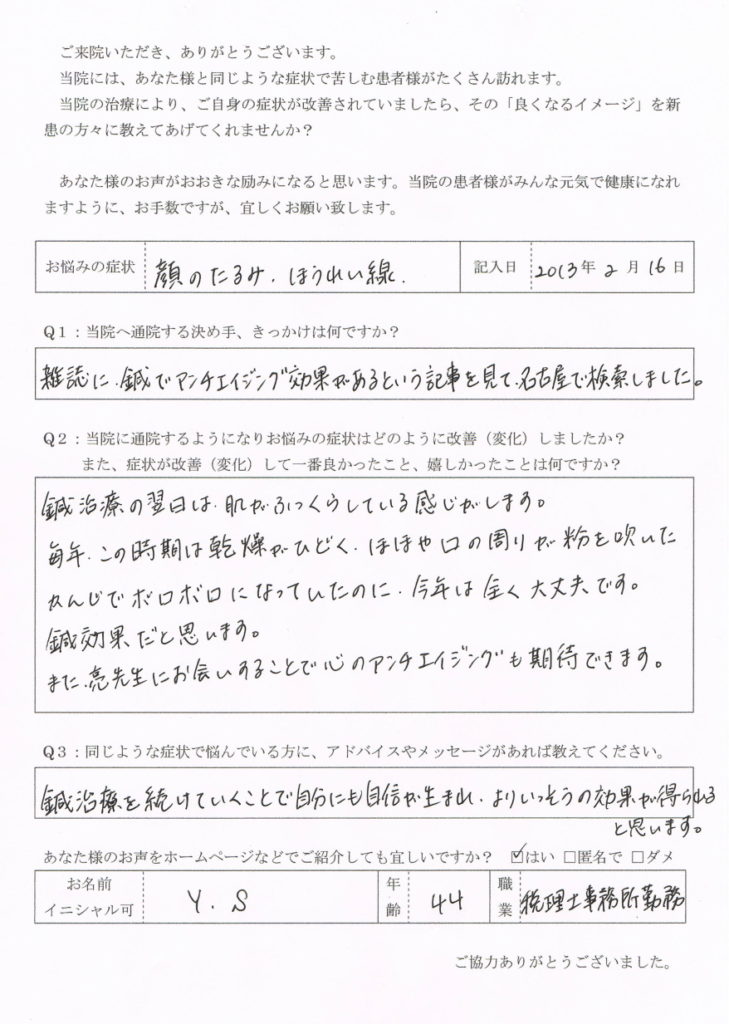 ご来院いただき、ありがとうございます。
当院には、あなた様と同じような症状で苦しむ患者様がたくさん訪れます。
当院の治療により、ご自身の症状が改善されていましたら、その「良くなるイメージ」を新
患の方々に教えてあげてくれませんか？
あなた様のお声がおおきな励みになると思います。当院の患者様がみんな元気で健康になれ
ますように、お手数ですが、宜しくお願い致します。
お悩みの症状 顔のたるみ、ほうれい線、 記入日 2013年 2月 16日
Q1：当院へ通院する決め手、きっかけは何ですか？
雑誌に、鍼でアンチエイジング効果があるという記事を見て、名古屋で検索しました。
Q2：当院に通院するようになりお悩みの症状はどのように改善（変化）しましたか？
また、症状が改善（変化）して一番良かったこと、嬉しかったことは何ですか？
鍼治療の翌日は、肌がふっくらしている感じがします。
毎年、この時期は乾燥がひどく、ほほや口の周りが粉を吹いた
かんじでボロボロになっていたのに、今年は全く大丈夫です。
鍼効果だと思います。
また、亮先生にお会いすることで心のアンチエイジングも期待できます。
Q3：同じような症状で悩んでいる方に、アドバイスやメッセージがあれば教えてください。
鍼治療を続けていくことで自分にも自信が生まれ、よりいっそうの効果が得られる
と思います。
あなた様のお声をホームページなどでご紹介しても宜しいですか？ ☑はい □匿名で □ダメ
お名前 イニシャル可 Y.S 年齢 44 職業 税理士事務所勤務
ご協力ありがとうございました。